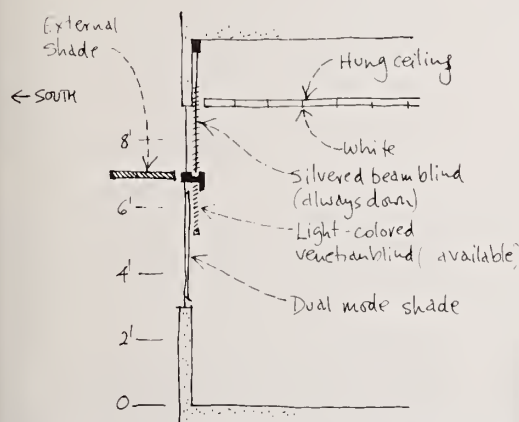 External
Shade
← SOUTH
Hung ceiling
8'
White
Silvered beam blind
(always down)
6'
Light-colored
venetian blind (available)
4'
Dual mode shade
2'
0